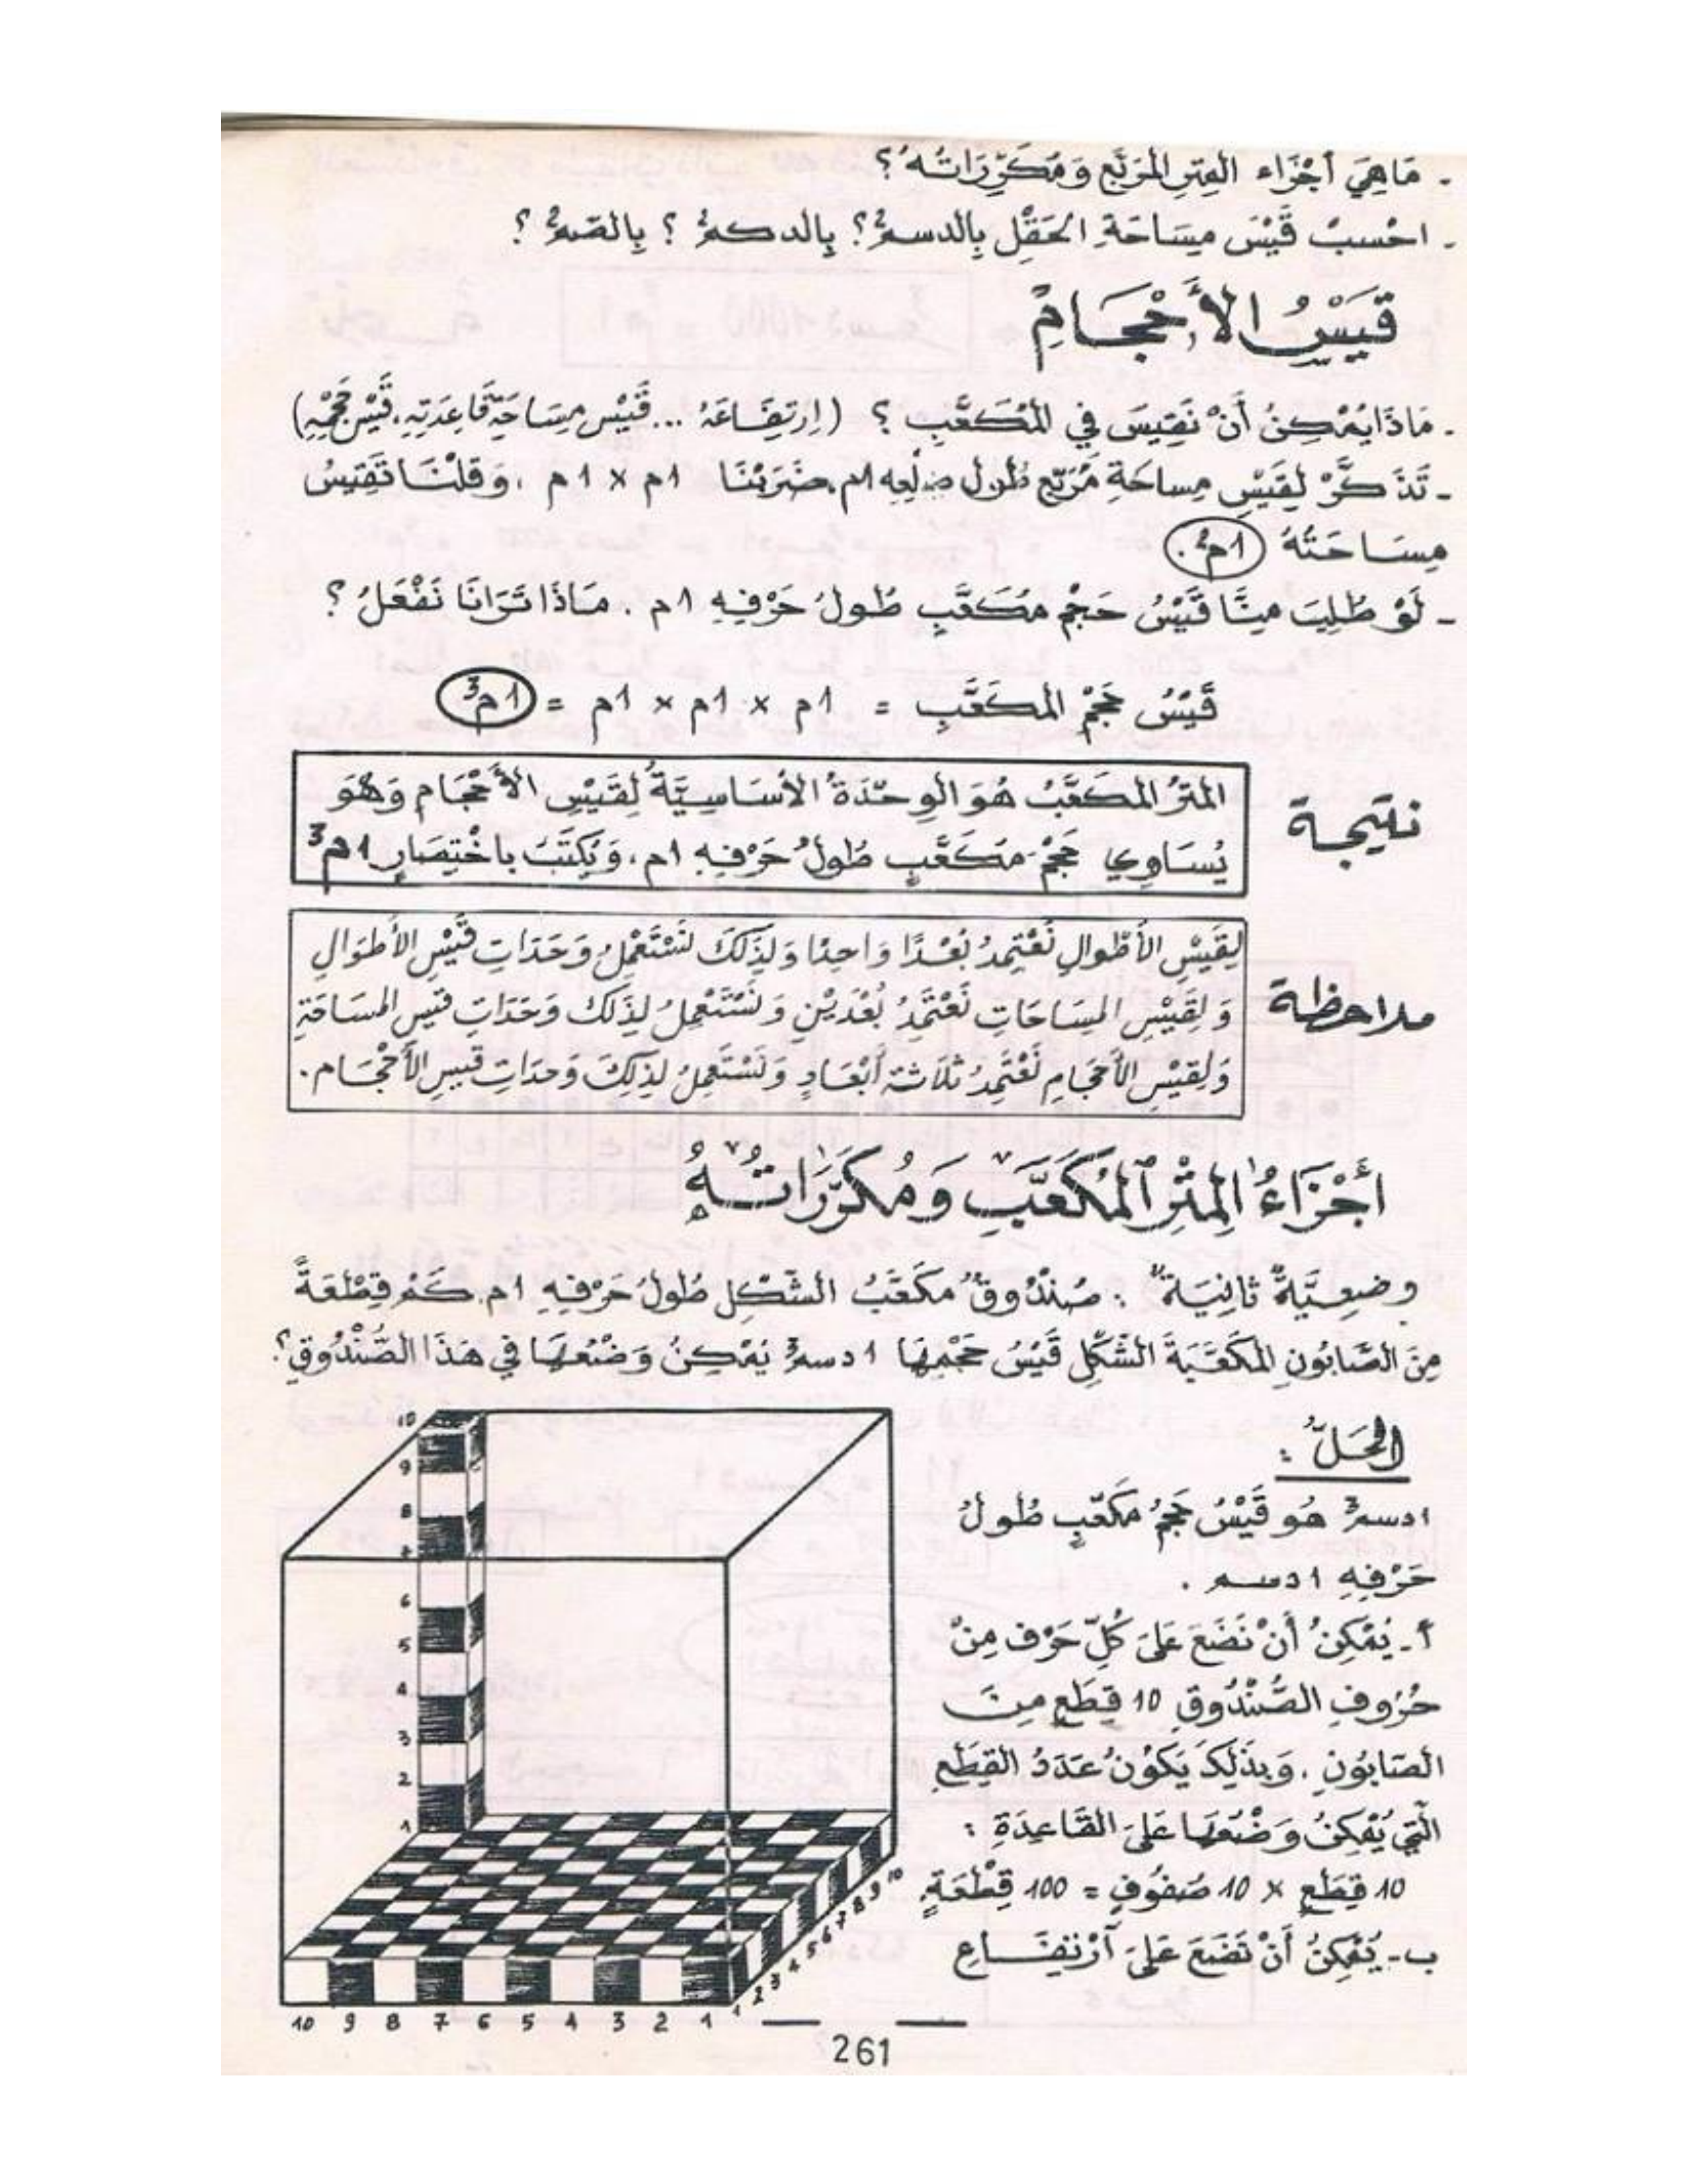 - مَاهِيَ أَجْزَاء المِتْرِ المُرَبَّعِ وَمُكَرَّرَاتُهُ؟
- احْسبْ قَيْسَ مِسَاحَةِ الحَقْلِ بِالدسم²؟ بِالدكم²؟ بِالصم²؟
قَيْسُ الأَحْجَامِ
- مَاذَا يُمْكِنُ أَنْ نَقِيسَ فِي المُكَعَّبِ ؟ (اِرْتِفَاعَهُ ... قَيْس مِسَاحَةِ قَاعِدَتِهِ، قَيْس حَجْمِهِ)
- تَذَكَّرْ لِقَيْسِ مِساحَةِ مُرَبَّعٍ طُولُ ضِلْعِهِ 1م، ضَرَبْنَا 1م × 1م ، وَقلْنَا تَقِيسُ
مِسَاحَتُهُ 1م².
- لَوْ طُلِبَ مِنَّا قَيْسُ حَجْمِ مُكَعَّبٍ طُولُ حَرْفِهِ 1م . مَاذَا تَرَانَا نَفْعَلُ ؟
قَيْسُ حَجْمِ المكَعَّبِ = 1م × 1م × 1م = 1م³
نتيجة
المترُ المكَعَّبُ هُوَ الوِحْدَةُ الأسَاسِيَّةُ لِقَيْسِ الأَحْجَامِ وَهْوَ
يُسَاوِي حَجْمَ مُكَعَّبٍ طُولُ حَرْفِهِ 1م، وَيُكْتَبُ باخْتِصَارٍ 1م³
ملاحظة
لِقَيْسِ الأَطْوالِ نَعْتَمِدُ بُعْدًا وَاحِدًا وَلِذَلكَ نَسْتَعْمِلُ وَحَدَاتِ قَيْسِ الأَطوَالِ
وَلِقَيْسِ المِسَاحَاتِ نَعْتَمِدُ بُعْدَيْنِ وَنَسْتَعْمِلُ لِذَلكَ وَحَدَاتِ قَيْسِ المسَاحَةِ
وَلِقَيْسِ الأَحْجَامِ نَعْتَمِدُ ثَلَاثَةَ أَبْعَادٍ وَنَسْتَعْمِلُ لِذَلِكَ وَحدَاتِ قَيسِ الأَحْجَام.
أَجْزَاءُ المِتْرِ المُكَعَّبِ وَمُكَرَّرَاتُهُ
وضعِيَّةٌ ثَانِيَةٌ : صُنْدُوقٌ مكَعَّبُ الشَّكْلِ طُولُ حَرْفِهِ 1م. كَمْ قِطْعَةً
مِنَ الصَّابُونِ المكَعَّبَةِ الشَّكْلِ قَيْسُ حَجْمِهَا 1دسم³ يُمْكِنُ وَضْعُهَا فِي هَذَا الصُّنْدُوقِ؟
الحَلُّ :
1دسم³ هُو قَيْسُ حَجْمِ مكَعَّبٍ طُولُ
حَرْفِهِ 1دسم .
أ - يُمْكِنُ أَنْ نَضَعَ عَلَى كُلِّ حَرْفٍ مِنْ
حُرُوفِ الصُّنْدُوقِ 10 قِطَعٍ مِنَ
الصَابُونِ . وَبِذَلِكَ يَكُونُ عَدَدُ القِطَعِ
الَّتِي يُمْكِنُ وَضْعُهَا عَلَى القَاعِدَةِ :
10 قِطَعٍ × 10 صُفُوفٍ = 100 قِطْعَةٍ
ب - يُمْكِنُ أَنْ نَضَعَ عَلَى ارْتِفَاعِ
10
9
8
7
6
5
4
3
2
1
10 9 8 7 6 5 4 3 2 1
1 2 3 4 5 6 7 8 9 10
261